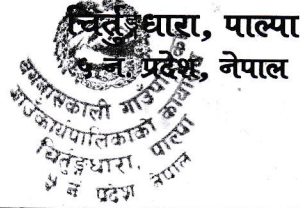 चिर्तुङ्गधारा, पाल्पा
५ नं. प्रदेश, नेपाल
बगनासकाली गाउँपालिका
गाउँकार्यपालिकाको कार्यालय
चिर्तुङ्गधारा, पाल्पा
५ नं प्रदेश नेपाल